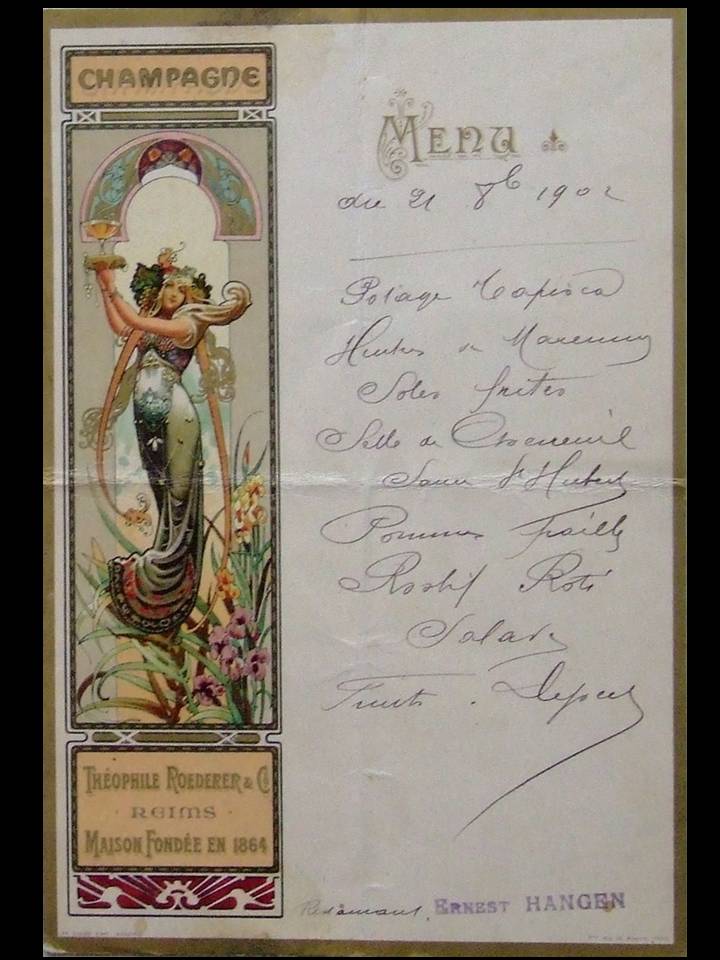 CHAMPAGNE
MENU
du 21 8b 1902
Potage Tapioca
Huitres de Marennes
Soles frites
Selle de Chevreuil
Sauce St Hubert
Pommes Paille
Rosbif Roti
Salade
Fruits . Dessert
THÉOPHILE ROEDERER & Co
REIMS
MAISON FONDÉE EN 1864
ERNEST HANGEN